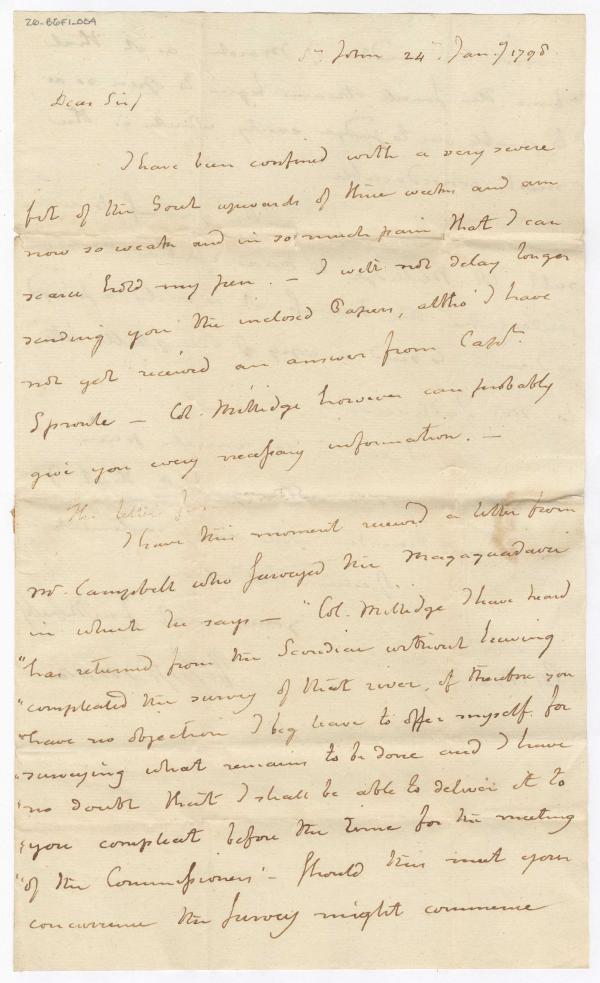 20-BGF1-004
St John 24th Jany 1798
Dear Sir/
I have been confined with a very severe
fit of the Gout upwards of three weeks and am
now so weak and in so much pain that I can
scarce hold my pen. — I will not delay longer
sending you the inclosed Papers, altho' I have
not yet received an answer from Capt.
Sproule — Col. Millidge however can probably
give you every necessary information. —
The letter
I have this moment received a letter from
Mr. Campbell who surveyed the Magaguadavic
in which he says — "Col. Millidge I have heard
"has returned from the Scoudiac without having
"compleated the survey of that river, if therefore you
"have no objection I beg leave to offer myself for
"surveying what remains to be done and I have
"no doubt that I shall be able to deliver it to
"you compleat before the time for the meeting
"of the Commissioners" — Should this meet your
concurrence the survey might commence